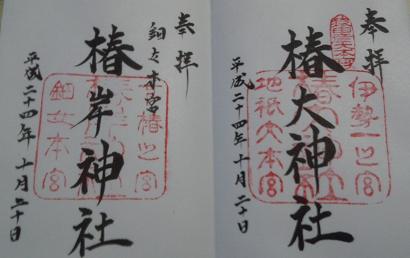 奉拝
伊勢一之宮
椿大神社
地祇大本宮
平成二十四年十月二十日
奉拝
鈿女本宮
椿岸神社
鈿女本宮
平成二十四年十月二十日